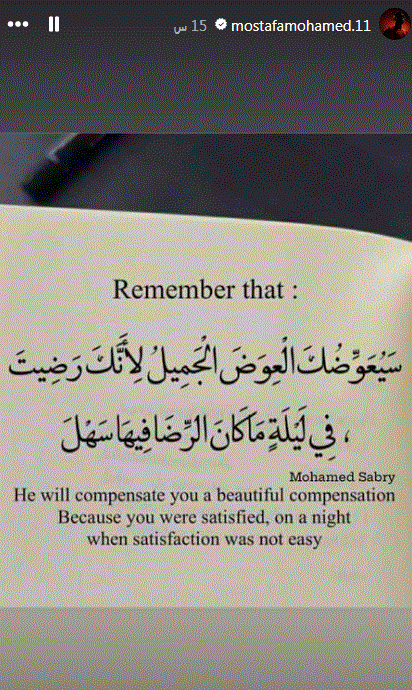 mostafamohamed.11 15 س
Remember that :
سَيُعَوِّضُكَ الْعِوَضَ الْجَمِيلُ لِأَنَّكَ رَضِيتَ
، فِي لَيْلَةٍ مَا كَانَ الرِّضَا فِيهَا سَهْلَ
Mohamed Sabry
He will compensate you a beautiful compensation
Because you were satisfied, on a night
when satisfaction was not easy